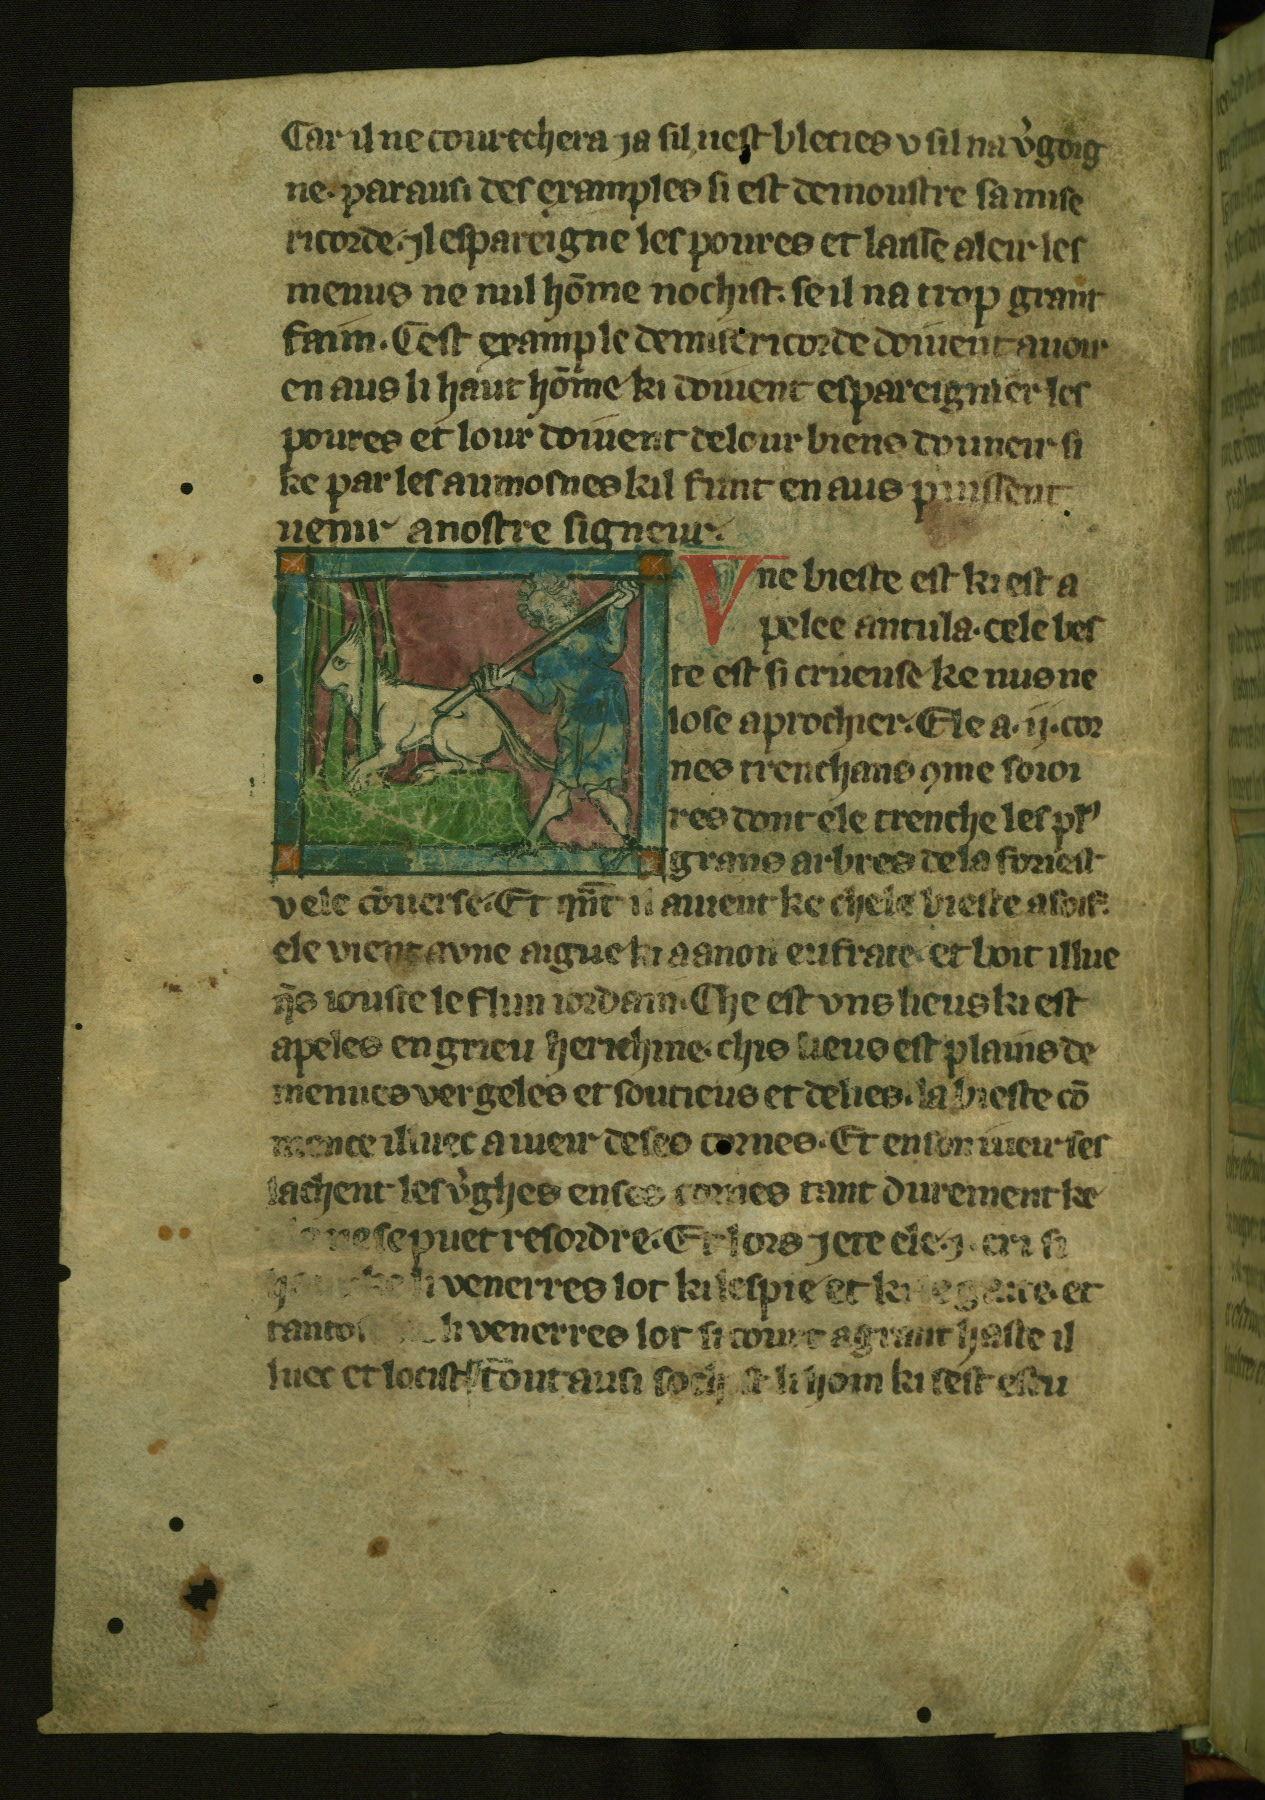 Car il ne courechera ja sil nest blecies v sil na v̓goig
ne. par ausi des examples si est demoustre sa mise
ricorde. jl espareigne les poures et laisse aleir les
menus ne nul hōme nochist. se il na trop grant
faim. Cest example de misericorde doiuent auoir
en aus li haut hōme ki doiuent espareignier les
poures et lour doiuent de lour biens douneir si
ke par les aumosnes kil funt en aus puissent
uenir a nostre signeur.
Vne bieste est ki est a
pelee antula. cele bes
te est si crueuse ke nus ne
lose aprochier. Ele a .ij. cor
nes trenchans ꝯme soioi
res dont ele trenche les pl᾿
grans arbres de la foriest
v ele cōuerse. Et qn̄t il auient ke chele bieste a soif.
ele vient a vne aigue ki a a non eufrate. et boit illue
q̄s iouste le flun iordain. Che est vns lieus ki est
apeles en grieu herichine. chis lieus est plains de
menues vergeles et soutieus et delies. la bieste cō
mence illuec a iueir de ses cornes. Et en son iueir ses
lachent les v̓ghes en ses cornes tant durement ke
ne se puet resordre. Et lors jete ele .j. cri si
li venerres lot ki lespie et ki et
li venerres lot si court a grant haste il
luec et locist. tout ausi li hom ki sest estu